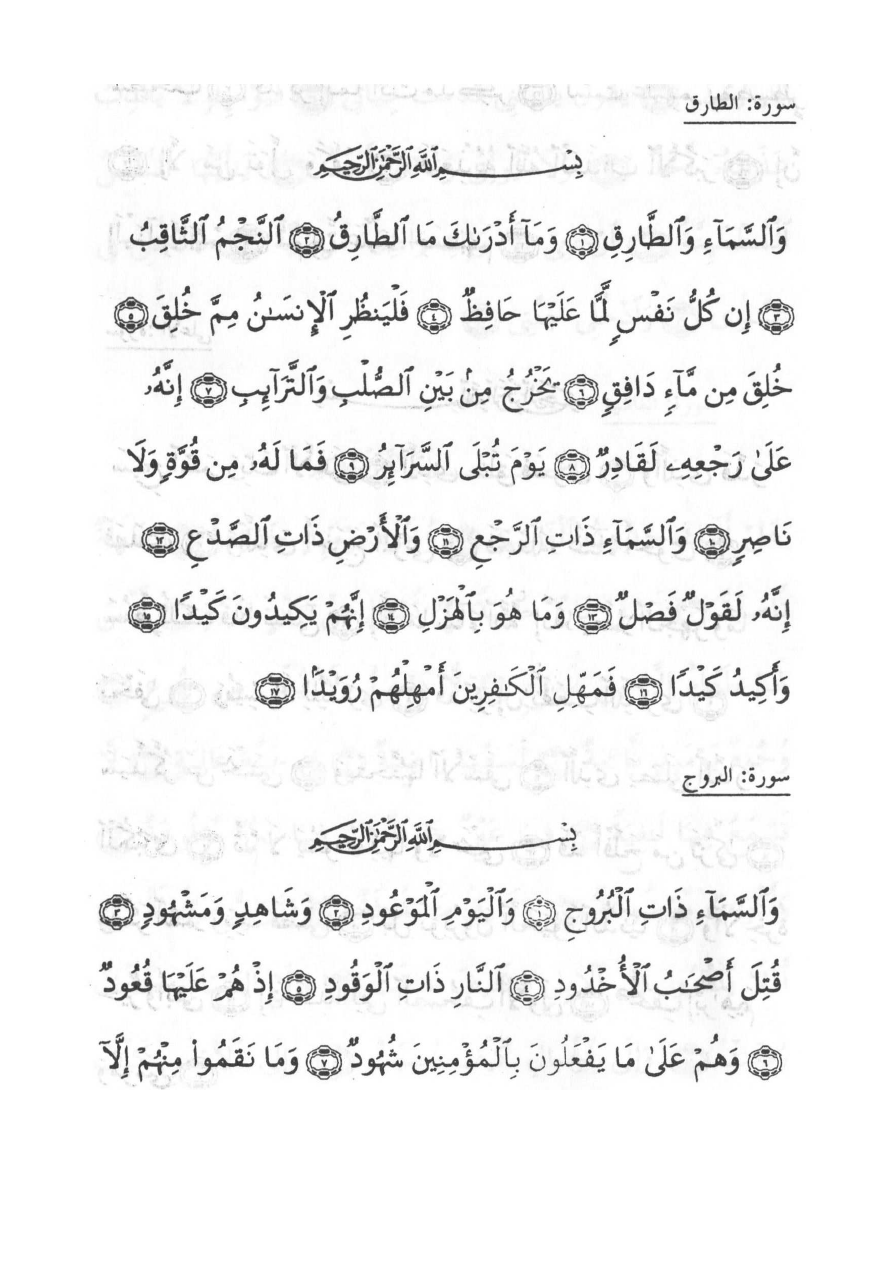 سورة: الطارق
بِسْمِ ٱللَّهِ ٱلرَّحْمَٰنِ ٱلرَّحِيمِ
وَٱلسَّمَآءِ وَٱلطَّارِقِ ۝١ وَمَآ أَدْرَىٰكَ مَا ٱلطَّارِقُ ۝٢ ٱلنَّجْمُ ٱلثَّاقِبُ
۝٣ إِن كُلُّ نَفْسٍ لَّمَّا عَلَيْهَا حَافِظٌ ۝٤ فَلْيَنظُرِ ٱلْإِنسَٰنُ مِمَّ خُلِقَ ۝٥
خُلِقَ مِن مَّآءٍ دَافِقٍ ۝٦ يَخْرُجُ مِنۢ بَيْنِ ٱلصُّلْبِ وَٱلتَّرَآئِبِ ۝٧ إِنَّهُۥ
عَلَىٰ رَجْعِهِۦ لَقَادِرٌ ۝٨ يَوْمَ تُبْلَى ٱلسَّرَآئِرُ ۝٩ فَمَا لَهُۥ مِن قُوَّةٍ وَلَا
نَاصِرٍ ۝١٠ وَٱلسَّمَآءِ ذَاتِ ٱلرَّجْعِ ۝١١ وَٱلْأَرْضِ ذَاتِ ٱلصَّدْعِ ۝١٢
إِنَّهُۥ لَقَوْلٌ فَصْلٌ ۝١٣ وَمَا هُوَ بِٱلْهَزْلِ ۝١٤ إِنَّهُمْ يَكِيدُونَ كَيْدًا ۝١٥
وَأَكِيدُ كَيْدًا ۝١٦ فَمَهِّلِ ٱلْكَٰفِرِينَ أَمْهِلْهُمْ رُوَيْدًۢا ۝١٧
سورة: البروج
بِسْمِ ٱللَّهِ ٱلرَّحْمَٰنِ ٱلرَّحِيمِ
وَٱلسَّمَآءِ ذَاتِ ٱلْبُرُوجِ ۝١ وَٱلْيَوْمِ ٱلْمَوْعُودِ ۝٢ وَشَاهِدٍ وَمَشْهُودٍ ۝٣
قُتِلَ أَصْحَٰبُ ٱلْأُخْدُودِ ۝٤ ٱلنَّارِ ذَاتِ ٱلْوَقُودِ ۝٥ إِذْ هُمْ عَلَيْهَا قُعُودٌ
۝٦ وَهُمْ عَلَىٰ مَا يَفْعَلُونَ بِٱلْمُؤْمِنِينَ شُهُودٌ ۝٧ وَمَا نَقَمُوا۟ مِنْهُمْ إِلَّآ